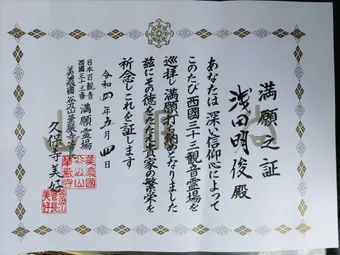 満願之証
浅田明俊殿
あなたは深い信仰心によって
このたび西國三十三観音霊場を
巡拝し満願打納めになりました
茲にその徳をたたえ貴家の繁栄を
祈念しこれを証します
令和四年五月四日
日本百観音
西國三十三番 満願霊場
美濃國谷汲山華厳寺
久保寺美好
美濃國
谷汲山
華厳寺